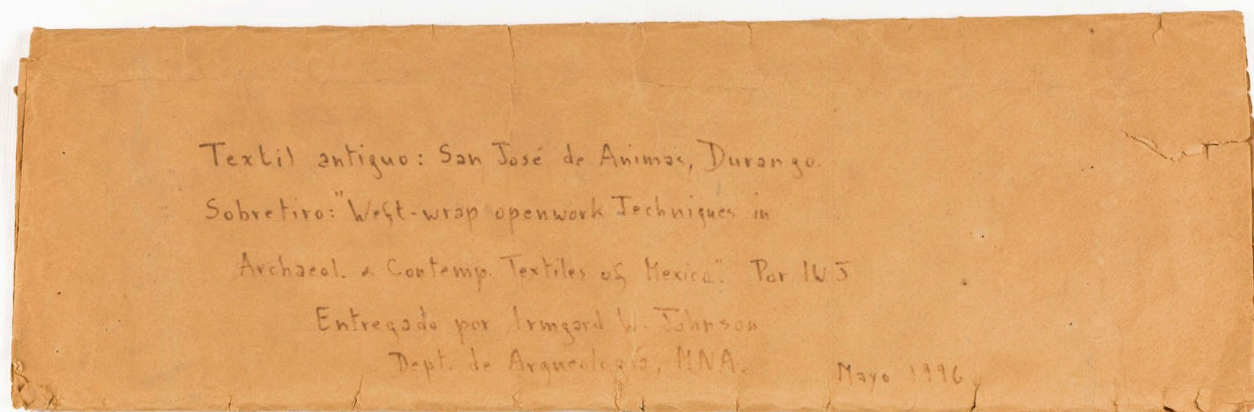 Textil antiguo: San José de Animas, Durango.
Sobretiro: "Weft-wrap openwork Techniques in
Archaeol. & Contemp. Textiles of Mexico". Por IWJ
Entregado por Irmgard W. Johnson
Dept. de Arqueología, MNA.
Mayo 1996